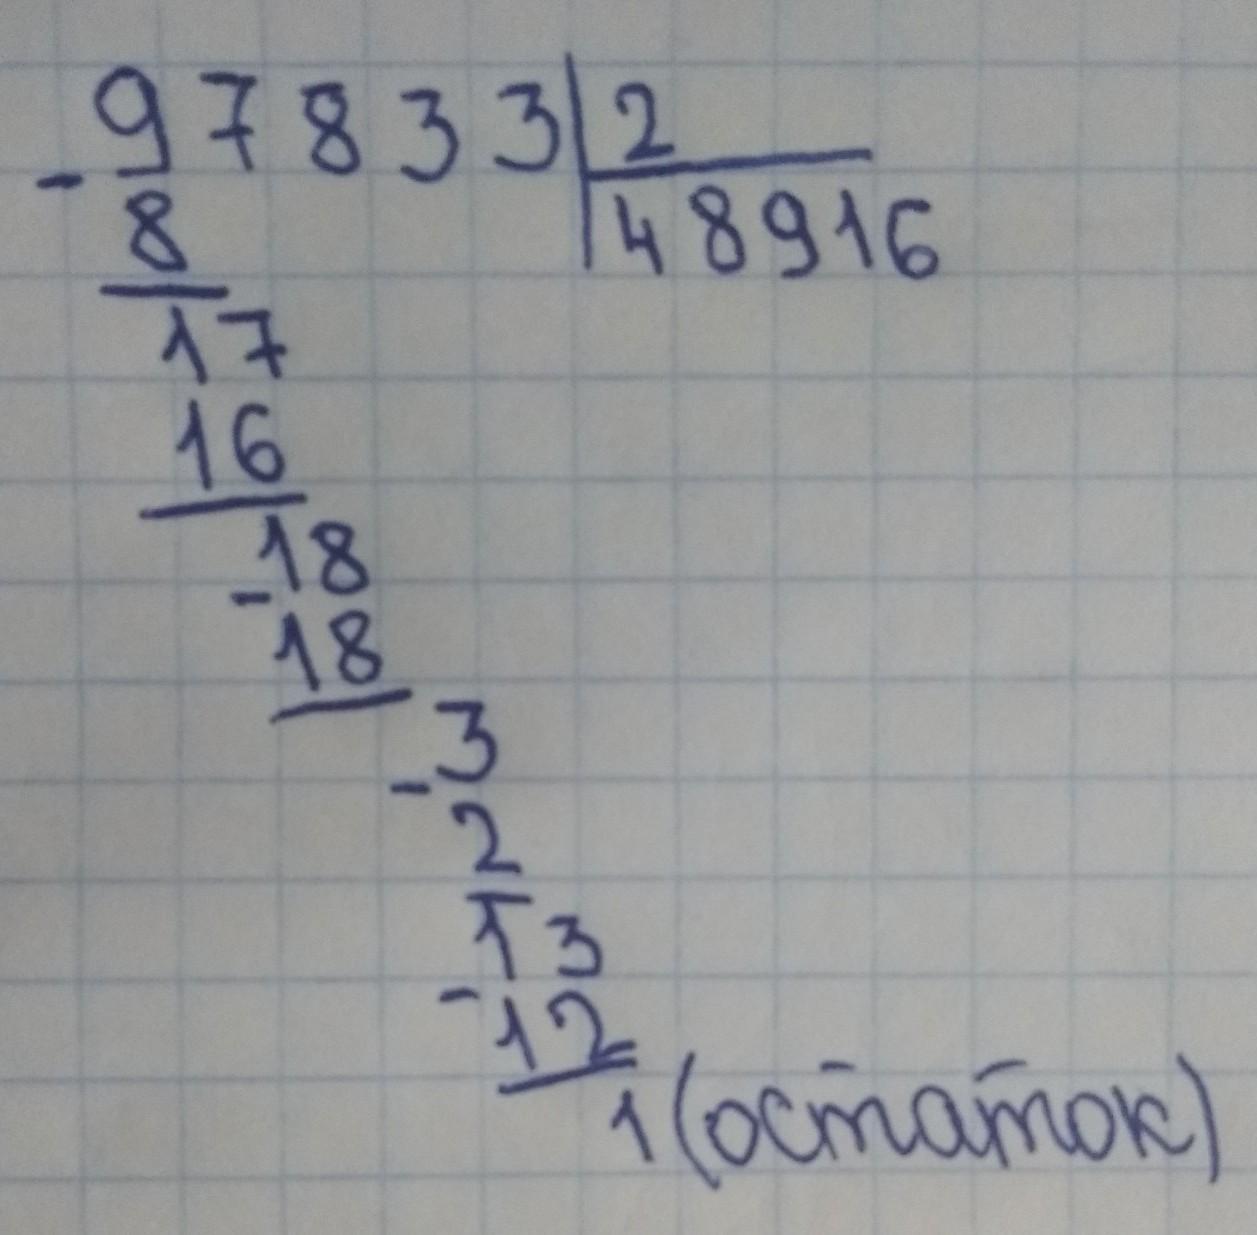 - 97833 | 2
8 48916
17
16
18
- 18
3
- 2
13
- 12
1 (остаток)